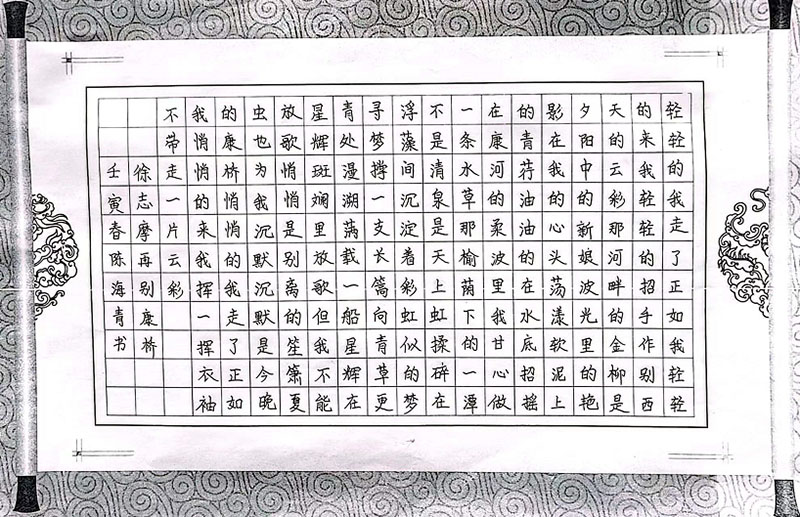 轻轻的我走了正如我轻轻
的来我轻轻的招手作别西
天的云彩那河畔的金柳是
夕阳中的新娘波光里的艳
影在我的心头荡漾软泥上
的青荇油油的在水底招摇
在康河的柔波里我甘心做
一条水草那榆荫下的一潭
不是清泉是天上虹揉碎在
浮藻间沉淀着彩虹似的梦
寻梦撑一支长篙向青草更
青处漫溯满载一船星辉在
星辉斑斓里放歌但我不能
放歌悄悄是别离的笙箫夏
虫也为我沉默沉默是今晚
的康桥悄悄的我走了正如
我悄悄的来我挥一挥衣袖
不带走一片云彩
徐志摩再别康桥
壬寅春陈海青书